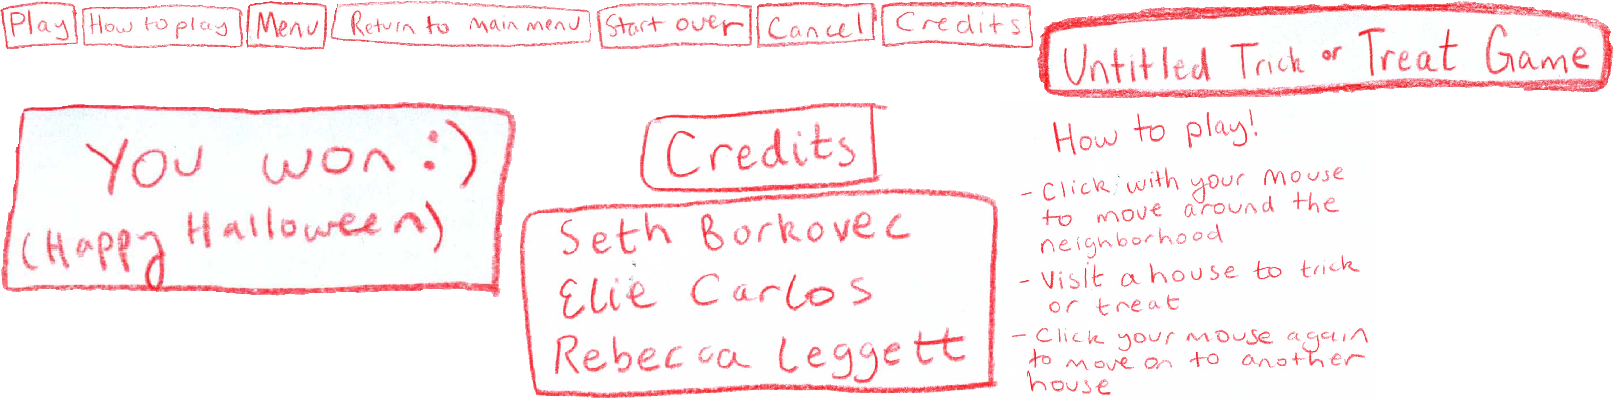 Play
How to play
Menu
Return to main menu
Start over
Cancel
Credits
Untitled Trick or Treat Game
You won :)
(Happy Halloween)
Credits
Seth Borkovec
Elie Carlos
Rebecca Leggett
How to play!
- Click with your mouse
to move around the
neighborhood
- Visit a house to trick
or treat
- Click your mouse again
to move on to another
house